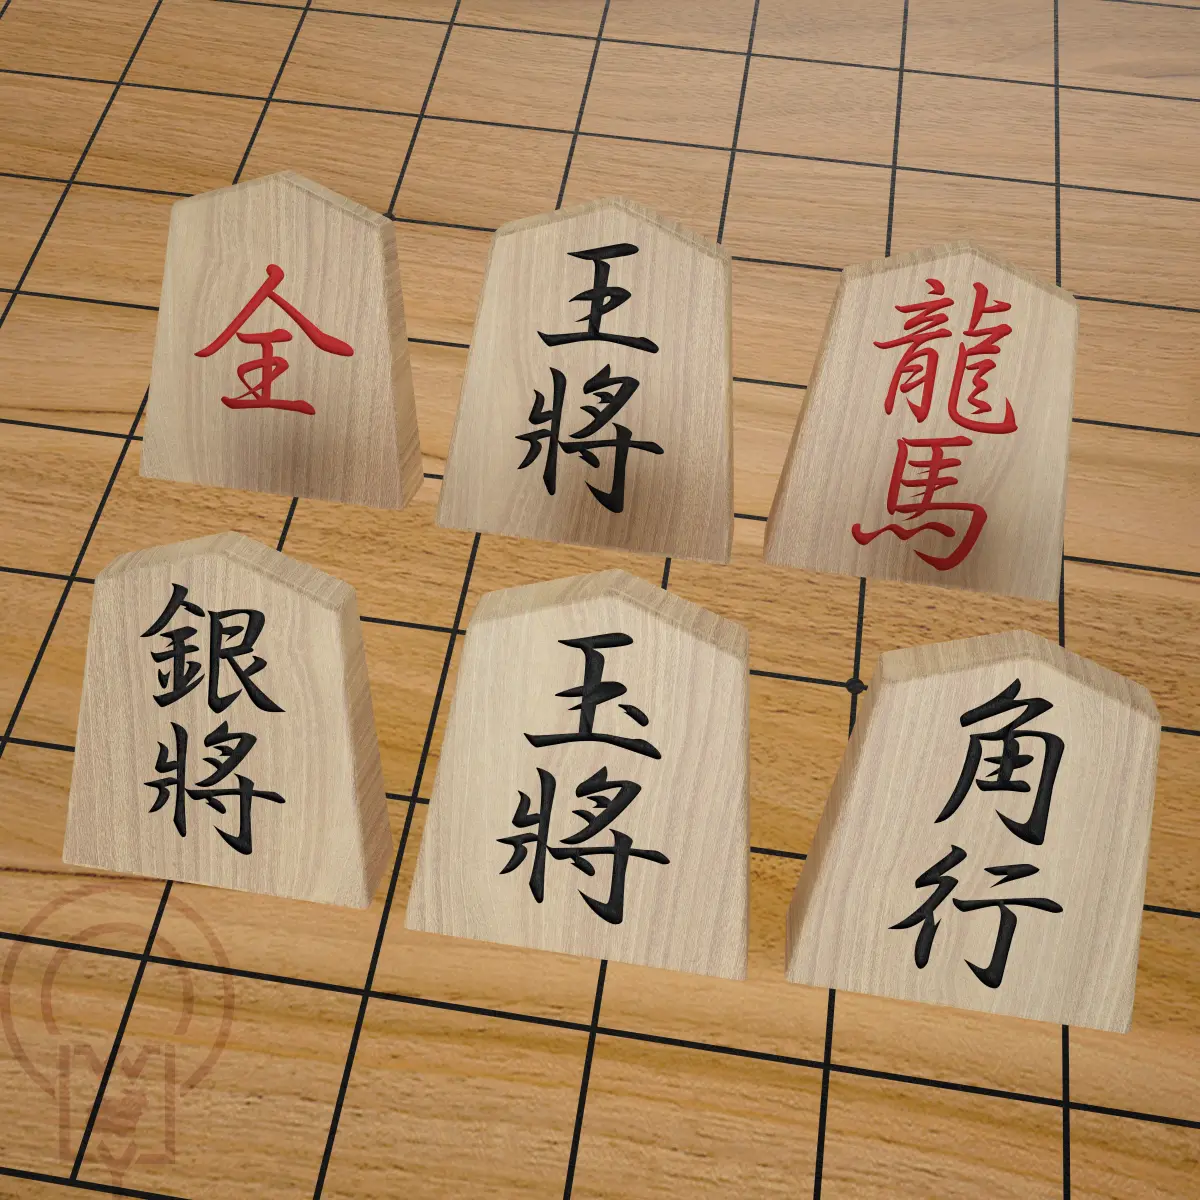 全
王將
龍馬
銀將
玉將
角行